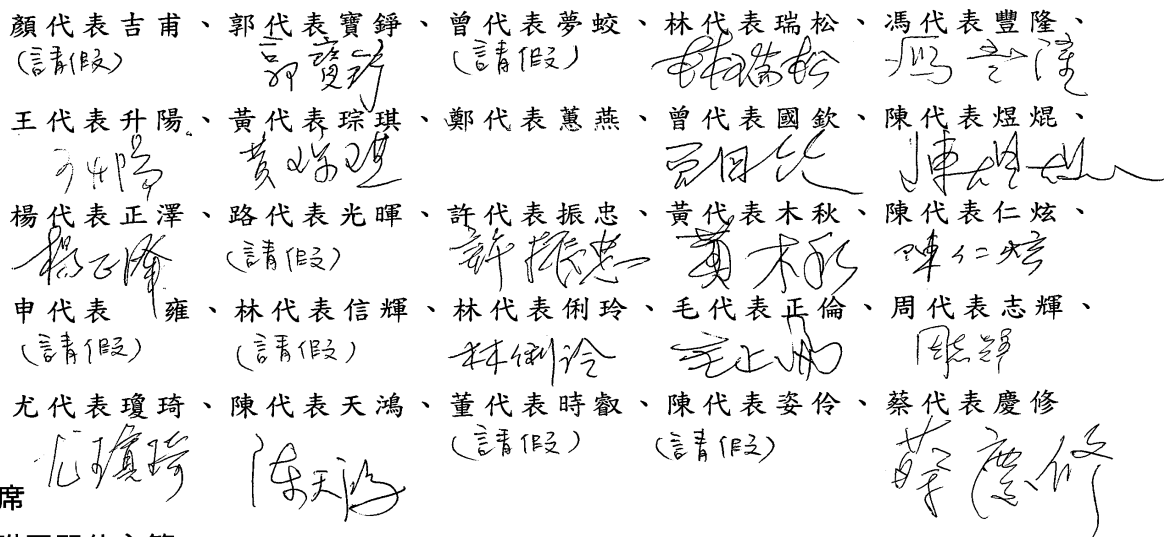 顏代表吉甫、郭代表寶錚、曾代表夢蛟、林代表瑞松、馮代表豐隆、
(請假) 郭寶錚 (請假) 林瑞松 馮豐隆
王代表升陽、黃代表琮琪、鄭代表蕙燕、曾代表國欽、陳代表煜焜、
王升陽 黃琮琪 曾國欽 陳煜焜
楊代表正澤、路代表光暉、許代表振忠、黃代表木秋、陳代表仁炫、
楊正澤 (請假) 許振忠 黃木秋 陳仁炫
申代表 雍、林代表信輝、林代表俐玲、毛代表正倫、周代表志輝、
(請假) (請假) 林俐玲 毛正倫 周志輝
尤代表瓊琦、陳代表天鴻、董代表時叡、陳代表姿伶、蔡代表慶修
尤瓊琦 陳天鴻 (請假) (請假) 蔡慶修
席